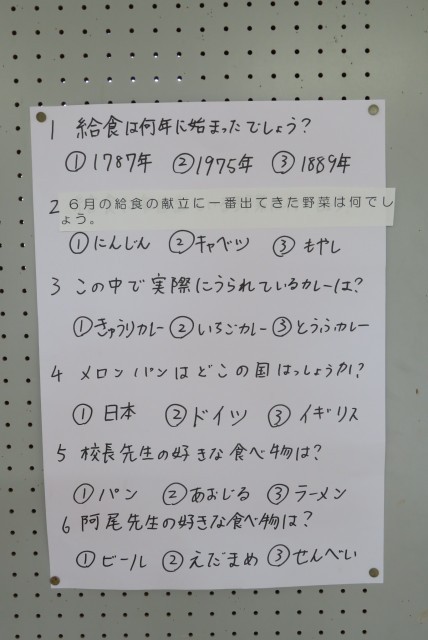 1 給食は何年に始まったでしょう?
①1787年 ②1975年 ③1889年
2 6月の給食の献立に一番出てきた野菜は何でし
ょう。
①にんじん ②キャベツ ③もやし
3 この中で実際にうられているカレーは?
①きゅうりカレー ②いちごカレー ③とうふカレー
4 メロンパンはどこの国はっしょうか?
①日本 ②ドイツ ③イギリス
5 校長先生の好きな食べ物は?
①パン ②あおじる ③ラーメン
6 阿尾先生の好きな食べ物は?
①ビール ②えだまめ ③せんべい